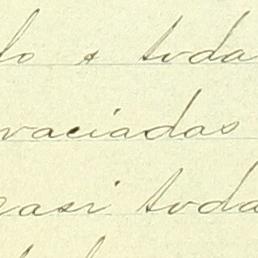 lo y toda
vaciadas
casi toda